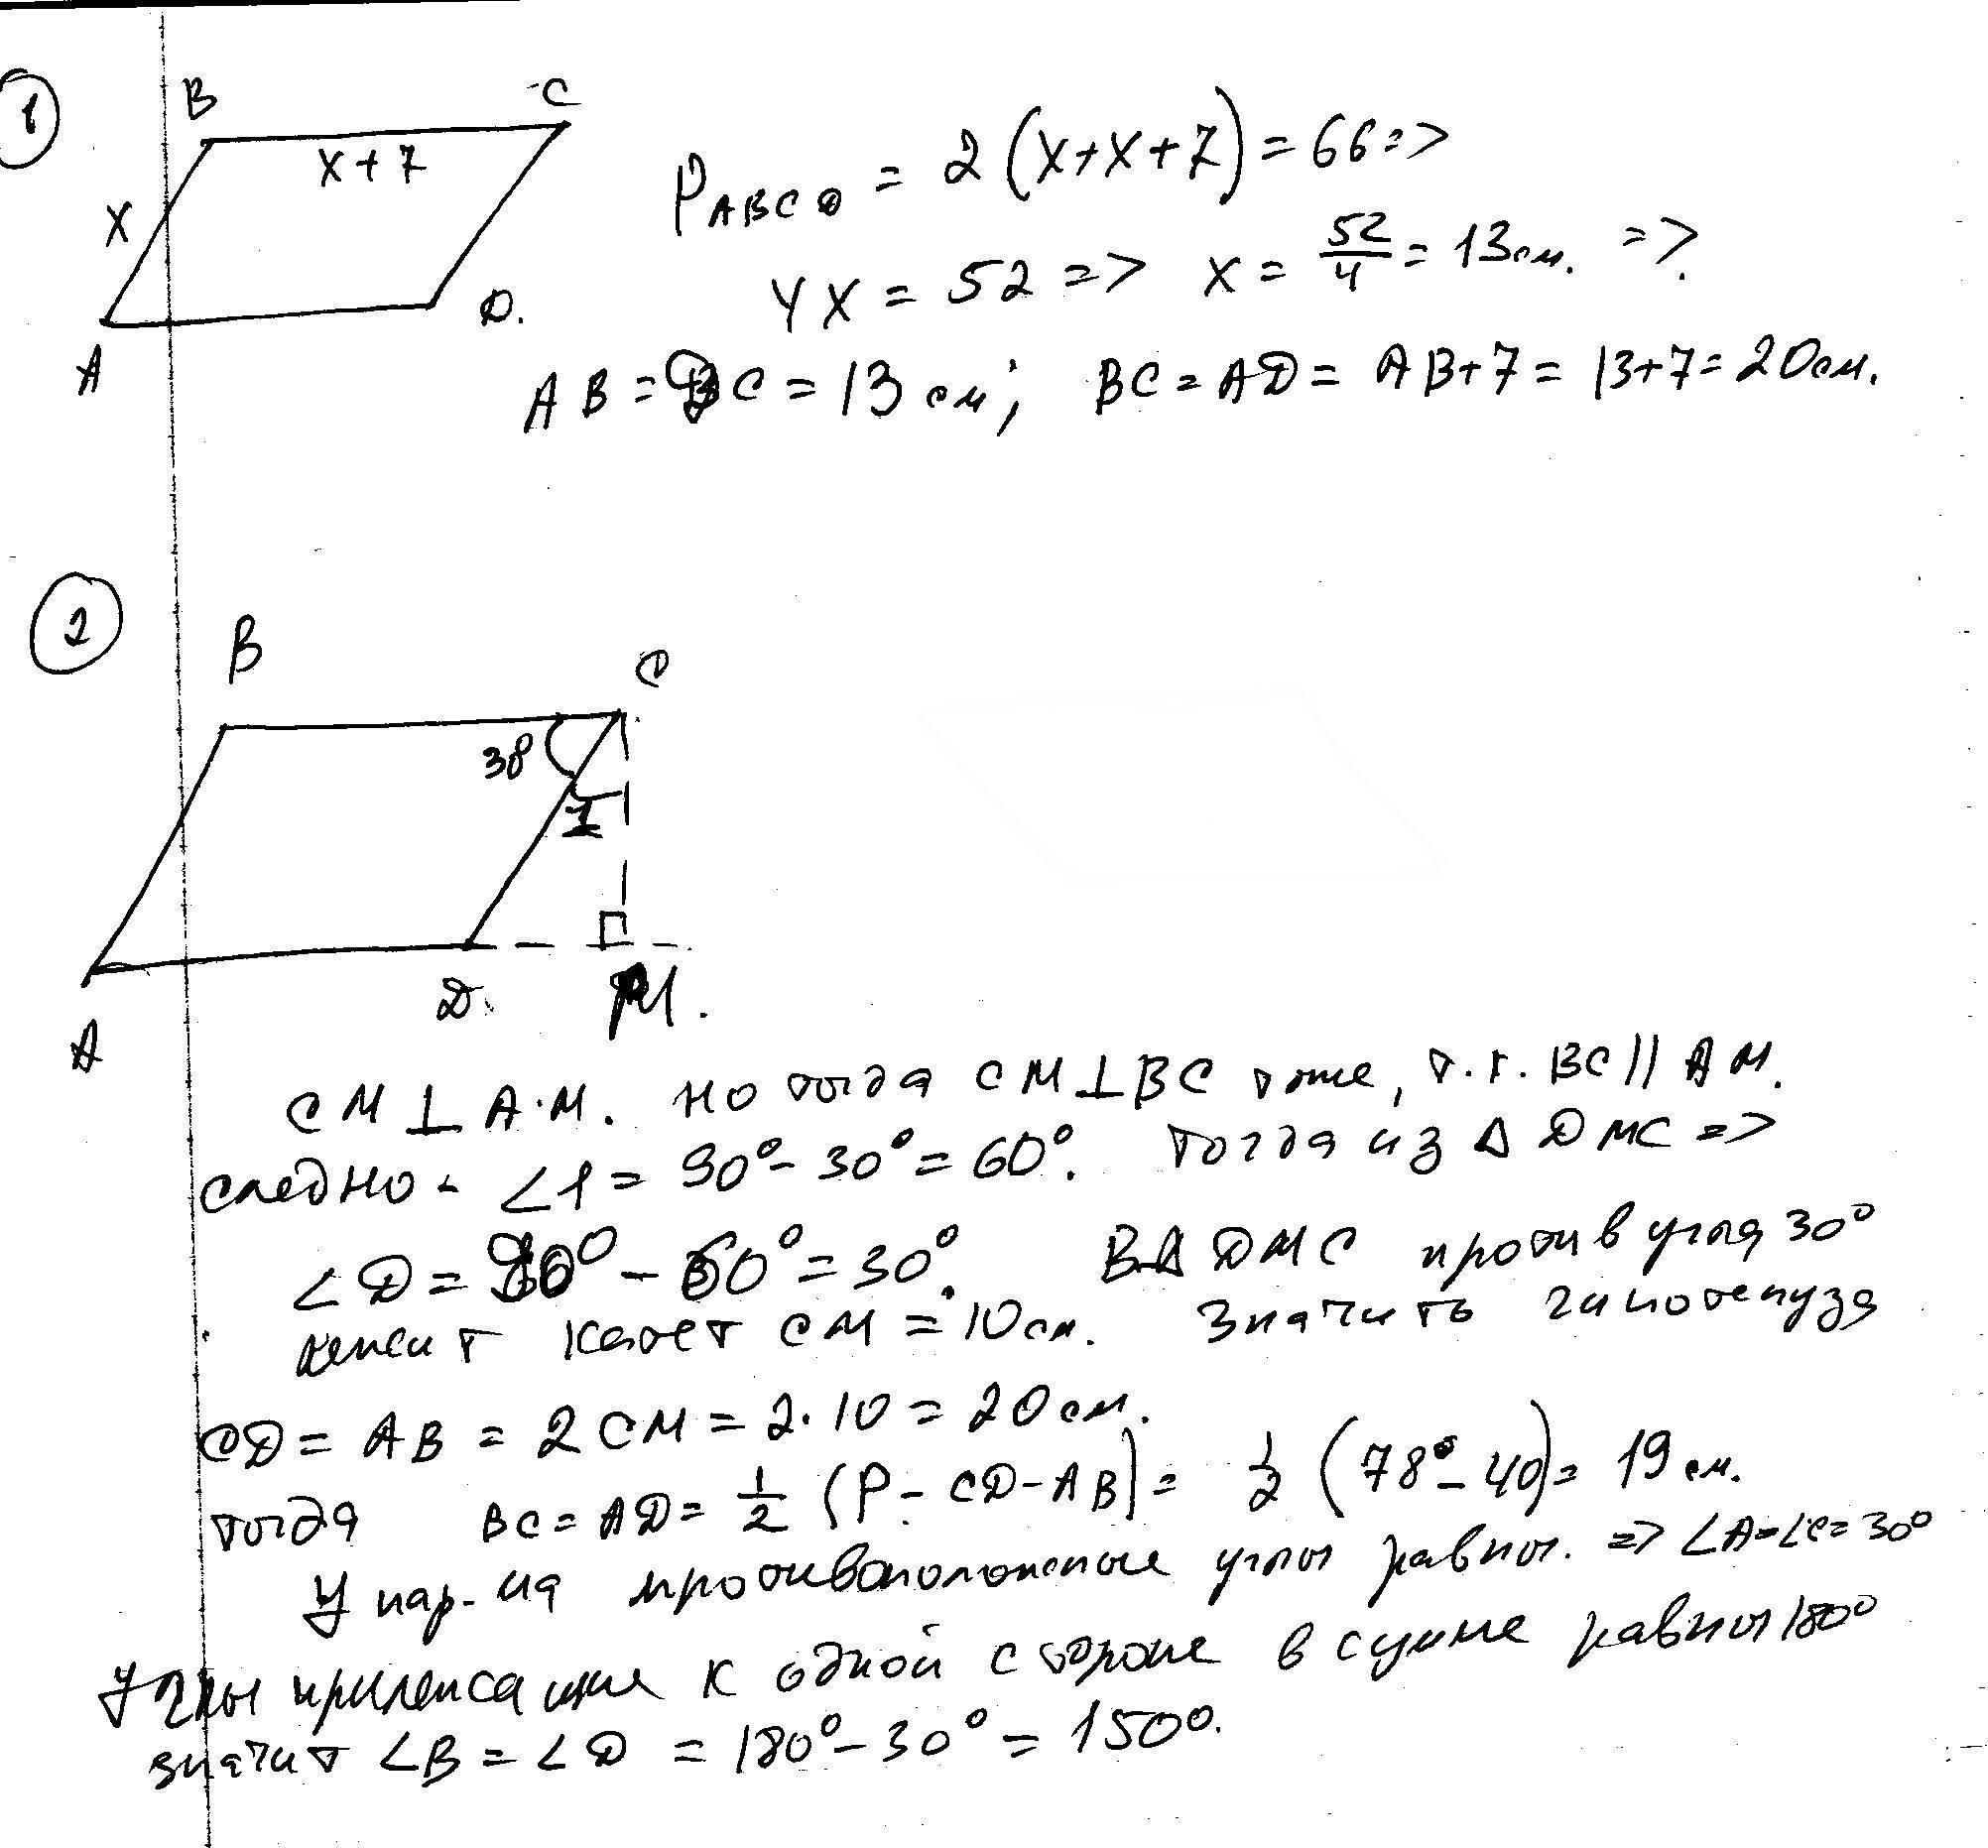 1
B C
x + 7
x
A D.
P ABCD = 2 (x+x+7) = 66 =>
4x = 52 => x = 52/4 = 13 см. =>.
AB = DC = 13 см; BC = AD = AB+7 = 13+7 = 20 см.
2
B C
38
1
D M.
A
CM ⊥ AM. Но тогда CM ⊥ BC тоже, т.к. BC || AM.
следно - ∠1 = 90° - 30° = 60°. Тогда из Δ DMC =>
∠D = 90° - 60° = 30°. В Δ DMC против угла 30°
лежит катет CM = 10 см. Значить гипотенуза
CD = AB = 2 CM = 2·10 = 20 см.
тогда BC = AD = 1/2 (P - CD - AB) = 1/2 (78 - 40) = 19 см.
У пар-ма противоположные углы равны. => ∠A = ∠C = 30°
Углы прилежащие к одной стороне в сумме равны 180°
значит ∠B = ∠D = 180° - 30° = 150°.